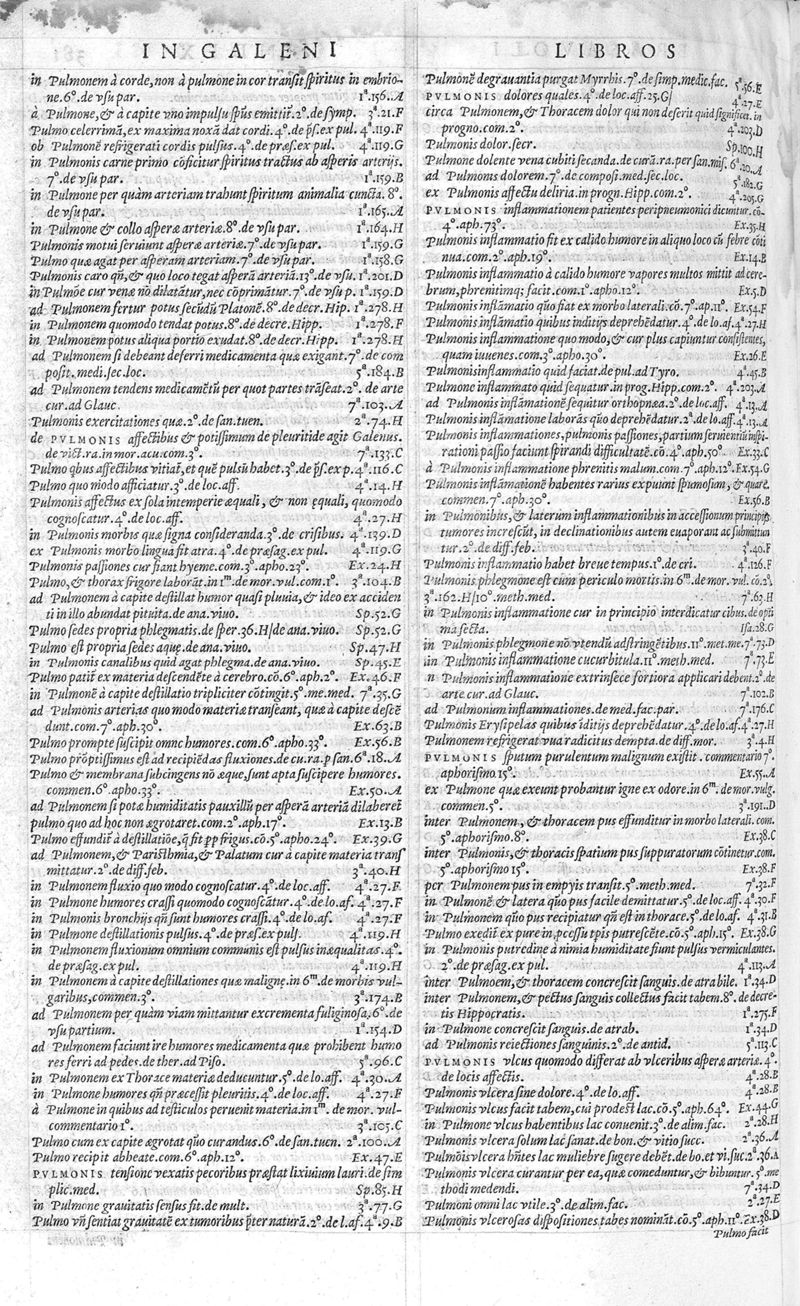 IN GALENI
in Pulmonem à corde, non à pulmone in cor transit spiritus in embrio-
ne. 6°. de vsu par. 1ª.156.A
à Pulmone, & à capite vno impulsu spũs emittit̃. 2°. de symp. 3ª.21.F
Pulmo celerrimã, ex maxima noxã dat cordi. 4°. de p̃s. ex pul. 4ª.119.F
ob Pulmonẽ refrigerati cordis pulsus. 4°. de præs. ex pul. 4ª.119.G
in Pulmonis carne primo cõficitur spiritus tractus ab asperis arterijs.
7°. de vsu par. 1ª.159.B
in Pulmone per quàm arteriam trahunt spiritum animalia cuncta. 8°.
de vsu par. 1ª.165.A
in Pulmone & collo asperæ arteriæ. 8°. de vsu par. 1ª.164.H
Pulmonis motui seruiunt asperæ arteriæ. 7°. de vsu par. 1ª.159.G
Pulmo quæ agat per asperam arteriam. 7°. de vsu par. 1ª.158.G
Pulmonis caro qñ, & quo loco tegat asperã arteriã. 13°. de vsu. 1ª.201.D
in Pulmõe cur venæ nõ dilatãtur, nec cõprimãtur. 7°. de vsu p. 1ª.159.D
ad Pulmonem fertur potus secũdũ Platonẽ. 8°. de decr. Hip. 1ª.278.H
in Pulmonem quomodo tendat potus. 8°. de decre. Hipp. 1ª.278.F
in Pulmonem potus aliqua portio exudat. 8°. de decr. Hipp. 1ª.278.H
ad Pulmonem si debeant deferri medicamenta quæ exigant. 7°. de com
posit. medi. sec. loc. 5ª.184.B
ad Pulmonem tendens medicamẽtũ per quot partes trãseat. 2°. de arte
cur. ad Glauc. 7ª.103.A
Pulmonis exercitationes quæ. 2°. de san. tuen. 2ª.74.H
de PVLMONIS affectibus & potissimum de pleuritide agit Galenus.
de vict. ra. in mor. acu. com. 3°. 7ª.133.C
Pulmo qbus affectibus vitiat̃, et quẽ pulsũ habet. 3°. de p̃s. ex p. 4ª.116.C
Pulmo quo modo afficiatur. 3°. de loc. aff. 4ª.14.H
Pulmonis affectus ex sola intemperie æquali, & non ęquali, quomodo
cognoscatur. 4°. de loc. aff. 4ª.27.H
in Pulmonis morbis quæ signa consideranda. 3°. de crisibus. 4ª.139.D
ex Pulmonis morbo lingua fit atra. 4°. de præsag. ex pul. 4ª.119.G
Pulmonis passiones cur fiant hyeme. com. 3°. apho. 23°. Ex.24.H
Pulmo, & thorax frigore laborãt. in 1m. de mor. vul. com. 1°. 3ª.104.B
ad Pulmonem à capite destillat humor quasi pluuia, & ideo ex acciden
ti in illo abundat pituita. de ana. viuo. Sp.52.G
Pulmo sedes propria phlegmatis. de sper. 36.H/ de ana. viuo. Sp.52.G
Pulmo est propria sedes aquę. de ana. viuo. Sp.47.H
in Pulmonis canalibus quid agat phlegma. de ana. viuo. Sp.45.E
Pulmo patit̃ ex materia descendẽte à cerebro. cõ. 6°. aph. 2°. Ex.46.F
in Pulmonẽ à capite destillatio tripliciter cõtingit. 5°. me. med. 7ª.35.G
ad Pulmonis arterias quo modo materiæ transeant, quæ à capite descẽ
dunt. com. 7°. aph. 30°. Ex.63.B
Pulmo prompte suscipit omne humores. com. 6°. apho. 33°. Ex.56.B
Pulmo prõptissimus est ad recipiẽdas fluxiones. de cu. ra. p san. 6ª.18.A
Pulmo & membrana subcingens nõ æque, sunt apta suscipere humores.
commen. 6°. apho. 33°. Ex.50.A
ad Pulmonem si potæ humiditatis pauxillũ per asperã arteriã dilaberet̃
pulmo quo ad hoc non ægrotaret. com. 2°. aph. 17°. Ex.13.B
Pulmo effundit̃ à destillatiõe, q̃ fit p̃p frigus. cõ. 5°. apho. 24°. Ex.39.G
ad Pulmonem, & Paristhmia, & Palatum cur à capite materia transf
mittatur. 2°. de diff. feb. 3ª.40.H
in Pulmonem fluxio quo modo cognoscatur. 4°. de loc. aff. 4ª.27.F
in Pulmone humores crassi quomodo cognoscãtur. 4°. de lo. af. 4ª.27.F
in Pulmonis bronchijs qñ sunt humores crassi. 4°. de lo. af. 4ª.27.F
in Pulmone destillationis pulsus. 4°. de præs. ex puls. 4ª.119.H
in Pulmonem fluxionum omnium communis est pulsus inæqualitas. 4°.
de præsag. ex pul. 4ª.119.H
in Pulmonem à capite destillationes quæ malignę. in 6m. de morbis vul-
garibus, commen. 3°. 3ª.174.B
ad Pulmonem per quàm viam mittantur excrementa fuliginosa, 6°. de
vsu partium. 1ª.154.D
ad Pulmonem faciunt ire humores medicamenta quæ prohibent humo
res ferri ad pedes. de ther. ad Piso. 5ª.96.C
in Pulmonem ex Thorace materiæ deducuntur. 5°. de lo. aff. 4ª.30.A
in Pulmone humores qñ præcessit pleuritis. 4°. de loc. aff. 4ª.27.F
à Pulmone in quibus ad testiculos peruenit materia. in 1m. de mor. vul-
commentario 1°. 3ª.105.C
Pulmo cum ex capite ægrotat quo curandus. 6°. de san. tuen. 2ª.100.A
Pulmo recipit ab heate. com. 6°. aph. 12°. Ex.47.E
PVLMONIS tensione vexatis pecoribus præstat lixiuium lauri. de sim
plic. med. Sp.85.H
in Pulmone grauitatis sensus fit. de mult. 3ª.77.G
Pulmo vñ sentiat grauitatẽ ex tumoribus p̃ter naturã. 2°. de l. af. 4ª.9.B
LIBROS
Pulmonẽ degrauantia purgat Myrrhis. 7°. de simp. medic. fac. 5ª.56.E
PVLMONIS dolores quales. 4°. de loc. aff. 25.G/ 4ª.27.E
circa Pulmonem, & Thoracem dolor qui non deserit quid significet. in
progno. com. 2°. 4ª.203.D
Pulmonis dolor. secr. Sp.100.H
Pulmone dolente vena cubiti secanda. de curã. ra. per san. mis. 6ª.20.A
ad Pulmonis dolorem. 7°. de composi. med. sec. loc. 5ª.182.G
ex Pulmonis affectu deliria. in progn. Hipp. com. 2°. 4ª.205.G
PVLMONIS inflammationem patientes peripneumonici dicuntur. cõ-
4°. aph. 73°. Ex.35.H
Pulmonis inflammatio fit ex calido humore in aliquo loco cũ febre cõti
nua. com. 2°. aph. 19°. Ex.14.B
Pulmonis inflammatio à calido humore vapores multos mittit ad cere-
brum, phrenitimq; facit. com. 1°. apho. 12°. Ex.5.D
Pulmonis inflãmatio quo fiat ex morbo laterali. cõ. 7°. ap. 11°. Ex.54.F
Pulmonis inflãmatio quibus inditijs deprehẽdatur. 4°. de lo. af. 4ª.27.H
Pulmonis inflammatione quo modo, & cur plus capiuntur consistentes,
quam iuuenes. com. 3°. apho. 30°. Ex.26.E
Pulmonis inflammatio quid faciat. de pul. ad Tyro. 4ª.45.B
Pulmone inflammato quid sequatur. in prog. Hipp. com. 2°. 4ª.203.A
ad Pulmonis inflãmationẽ sequitur orthopnæa. 2°. de loc. aff. 4ª.13.A
Pulmonis inflãmatione laborãs quo deprehẽdatur. 2ª. de lo. aff. 4ª.13.A
Pulmonis inflammationes, pulmonis passiones, partium seruientiũ inspi-
rationi passio faciunt spirandi difficultatẽ. cõ. 4°. aph. 50°. Ex.33.C
à Pulmonis inflammatione phrenitis malum. com. 7°. aph. 12°. Ex.54.G
Pulmonis inflãmationẽ habentes rarius expuunt spumosum, & quare.
commen. 7°. aph. 30°. Ex.56.B
in Pulmonibus, & laterum inflammationibus in accessionum principijs
tumores increscũt, in declinationibus autem euaporant ac submittun
tur. 2°. de diff. feb. 3ª.40.F
Pulmonis inflammatio habet breue tempus. 1°. de cri. 4ª.126.F
Pulmonis phlegmone est cum periculo mortis. in 6m. de mor. vul. cõ. 2°.
3ª.162.H/ 10°. meth. med. 7ª.63.H
in Pulmonis inflammatione cur in principio interdicatur cibus. de opti
ma secta. Isa.28.G
in Pulmonis phlegmone nõ vtendũ adstringẽtibus. 11°. met. me. 7ª.73.D
in Pulmonis inflammatione cucurbitula. 11°. meth. med. 7ª.73.E
n Pulmonis inflammatione extrinsece fortiora applicari debent. 2°. de
arte cur. ad Glauc. 7ª.102.B
ad Pulmonium inflammationes. de med. fac. par. 7ª.176.C
Pulmonis Erysipelas quibus iditijs deprehẽdatur. 4°. de lo. af. 4ª.27.H
Pulmonem refrigerat vua radicitus dempta. de diff. mor. 3ª.4.H
PVLMONIS sputum purulentum malignum existit. commentario 7°.
aphorismo 15°. Ex.55.A
ex Pulmone quæ exeunt probantur igne ex odore. in 6m. de mor. vulg.
commen. 5°. 3ª.191.D
inter Pulmonem, & thoracem pus effunditur in morbo laterali. com.
5°. aphorismo. 8°. Ex.38.C
inter Pulmonis, & thoracis spatium pus suppuratorum cõtinetur. com.
5°. aphorismo 15°. Ex.38.F
per Pulmonem pus in empyis transit. 5°. meth. med. 7ª.32.F
in Pulmonẽ & latera quo pus facile demittatur. 5°. de loc. aff. 4ª.30.F
in Pulmonem quo pus recipiatur qñ est in thorace. 5°. de lo. af. 4ª.31.B
Pulmo exedit̃ ex pure in, pcessu tpis putrescẽte. cõ. 5°. aph. 15°. Ex.38.G
in Pulmonis putredine à nimia humiditate fiunt pulsus vermiculantes.
2°. de præsag. ex pul. 4ª.113.A
inter Pulmoem, & thoracem concrescit sanguis. de atra bile. 1ª.34.D
inter Pulmonem, & pectus sanguis collectus facit tabem. 8°. de decre-
tis Hippocratis. 1ª.275.F
in Pulmone concrescit sanguis. de atrab. 1ª.34.D
ad Pulmonis reiectiones sanguinis. 2°. de antid. 5ª.113.C
PVLMONIS vlcus quomodo differat ab vlceribus asperæ arteriæ. 4°.
de locis affectis. 4ª.28.B
Pulmonis vlcera sine dolore. 4°. de lo. aff. 4ª.28.B
Pulmonis vlcus facit tabem, cui prodest lac. cõ. 5°. aph. 64°. Ex.44.G
in Pulmone vlcus habentibus lac conuenit. 3°. de alim. fac. 2ª.28.H
Pulmonis vlcera solum lac sanat. de bon. & vitio succ. 2ª.36.A
Pulmõis vlcera hñtes lac muliebre sugere debẽt. de bo. et vi. suc. 2ª.36.A
Pulmonis vlcera curantur per ea, quæ comeduntur, & bibuntur. 5°. me
thodi medendi. 7ª.34.D
Pulmoni omni lac vtile. 3°. de alim. fac. 2ª.27.E
Pulmonis vlcerosas dispositiones, tabes nominãt. cõ. 5°. aph. 11°. Ex.38.D
Pulmo facit